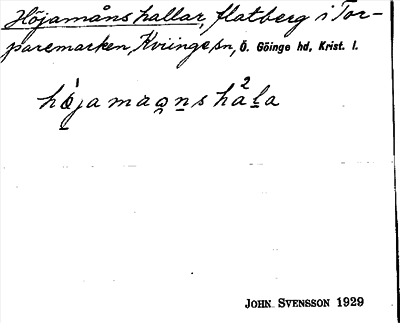 Höjamåns hallar, flatberg i Tor-
paremarken, Kviinge sn, Ö. Göinge hd, Krist. l.
JOHN SVENSSON 1929